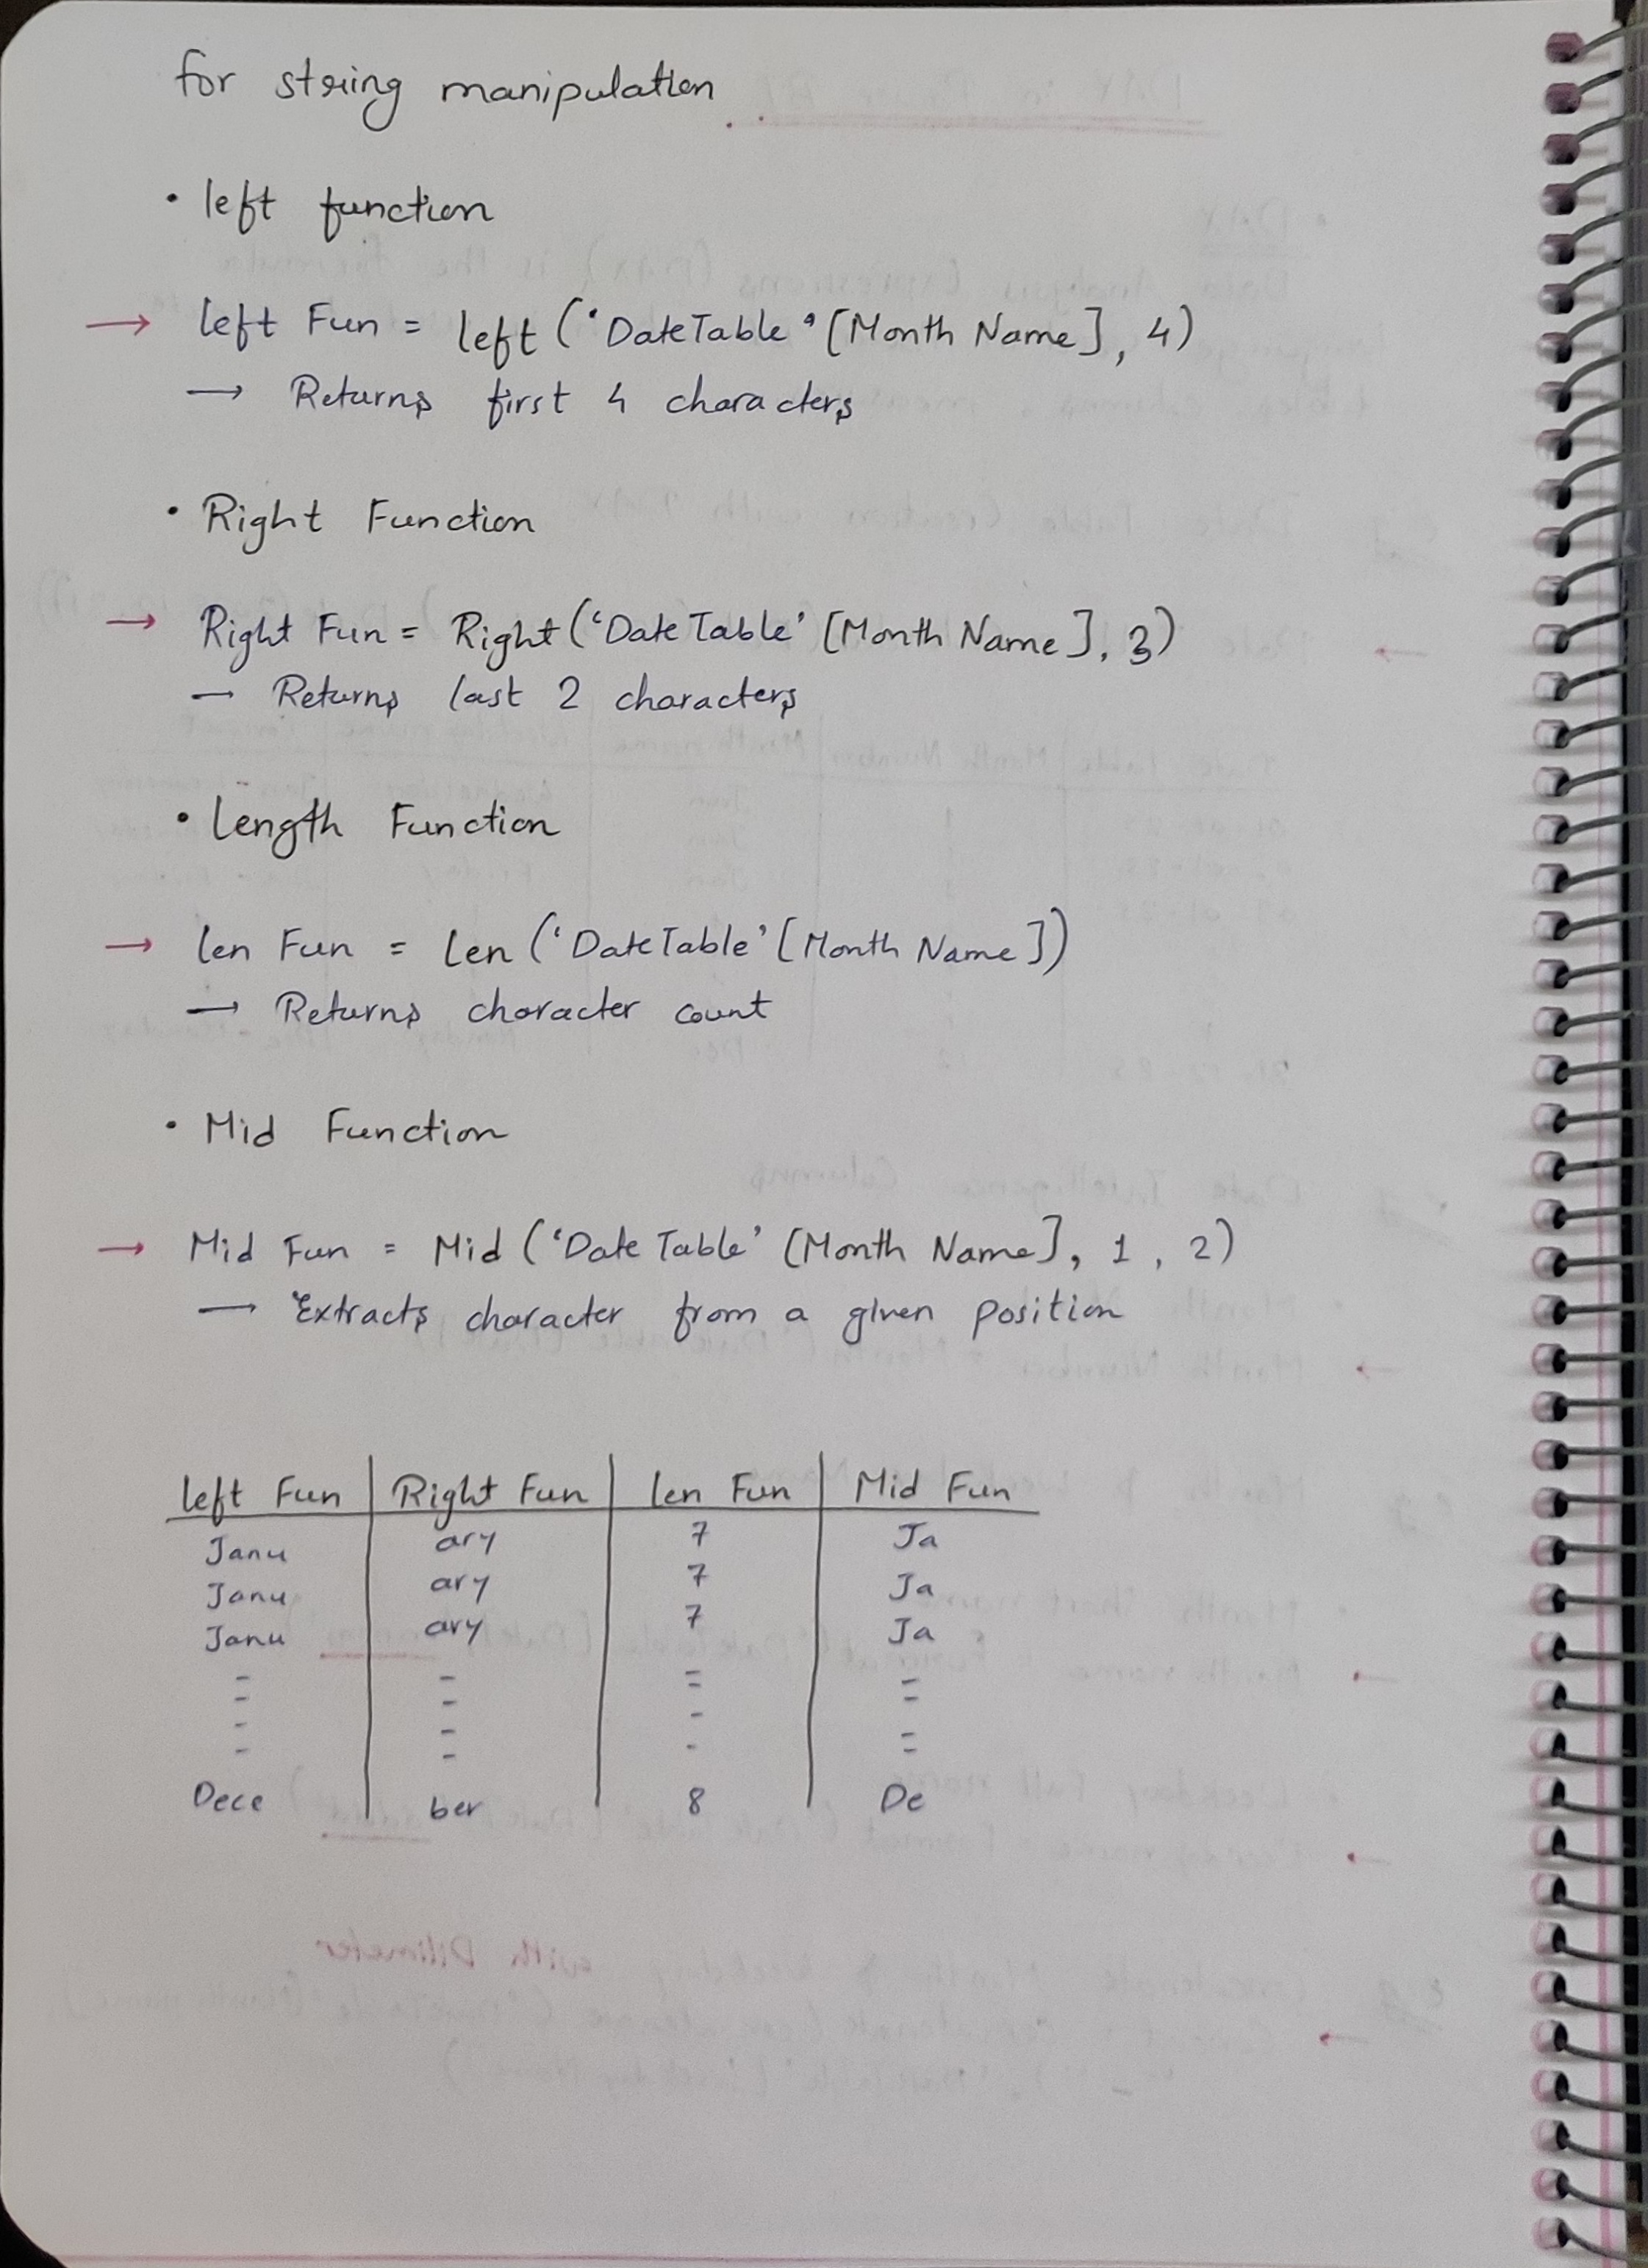 for string manipulation
• left function
→ left Fun = left ('DateTable' [Month Name], 4)
→ Returns first 4 characters
• Right Function
→ Right Fun = Right ('DateTable' [Month Name], 3)
→ Returns last 2 characters
• Length Function
→ len Fun = Len ('DateTable' [Month Name])
→ Returns character count
• Mid Function
→ Mid Fun = Mid ('DateTable' [Month Name], 1, 2)
→ Extracts character from a given position
left Fun | Right Fun | len Fun | Mid Fun
Janu | ary | 7 | Ja
Janu | ary | 7 | Ja
Janu | ary | 7 | Ja
- | - | - | -
- | - | - | -
- | - | - | -
- | - | - | -
Dece | ber | 8 | De